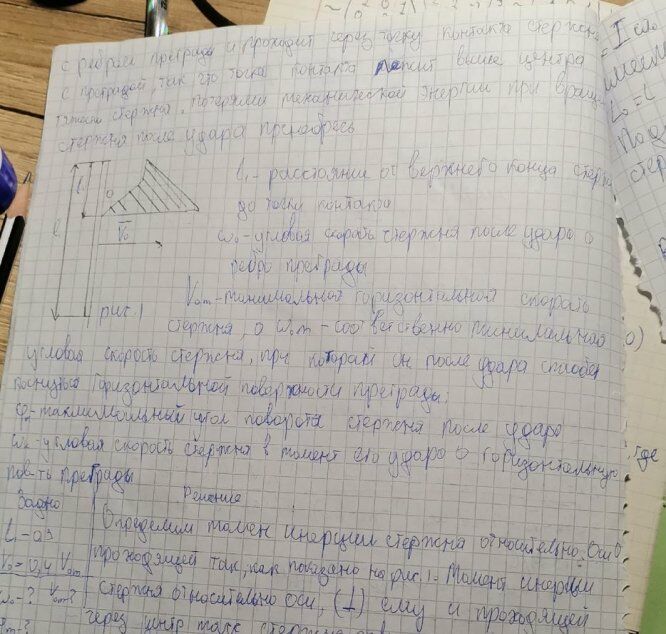 с ребром преграды и проходит через точку контакта стержня
с преградой, так что точка контакта лежит выше центра
тяжести стержня. потерями механической энергии при вращ-
стержня после удара пренебречь
l₁ - расстояние от верхнего конца стержн
до точки контакта
ω₀ - угловая скорость стержня после удара о
ребро преграды
V₀m - минимальной горизонтальной скорость
стержня, а ω₀m - соответственно минимальная
угловая скорость стержня, при которой он после удара способен
коснуться горизонтальной поверхности преграды;
φm - максимальный угол поворота стержня после удара
ωк - угловая скорость стержня в момент его удара о горизонтальную
пов-ть преграды
l
l₁
O
V̅₀
рис. 1
Решение
V₀ = 0,4 V₀m
ω₀ - ? V₀m - ?
Определим момен инерции стержня относительно оси O
проходящей так, как показано на рис. 1. Момент инерции
стержня относительно оси, (⊥) ему и проходящей
через центр масс стержня
где